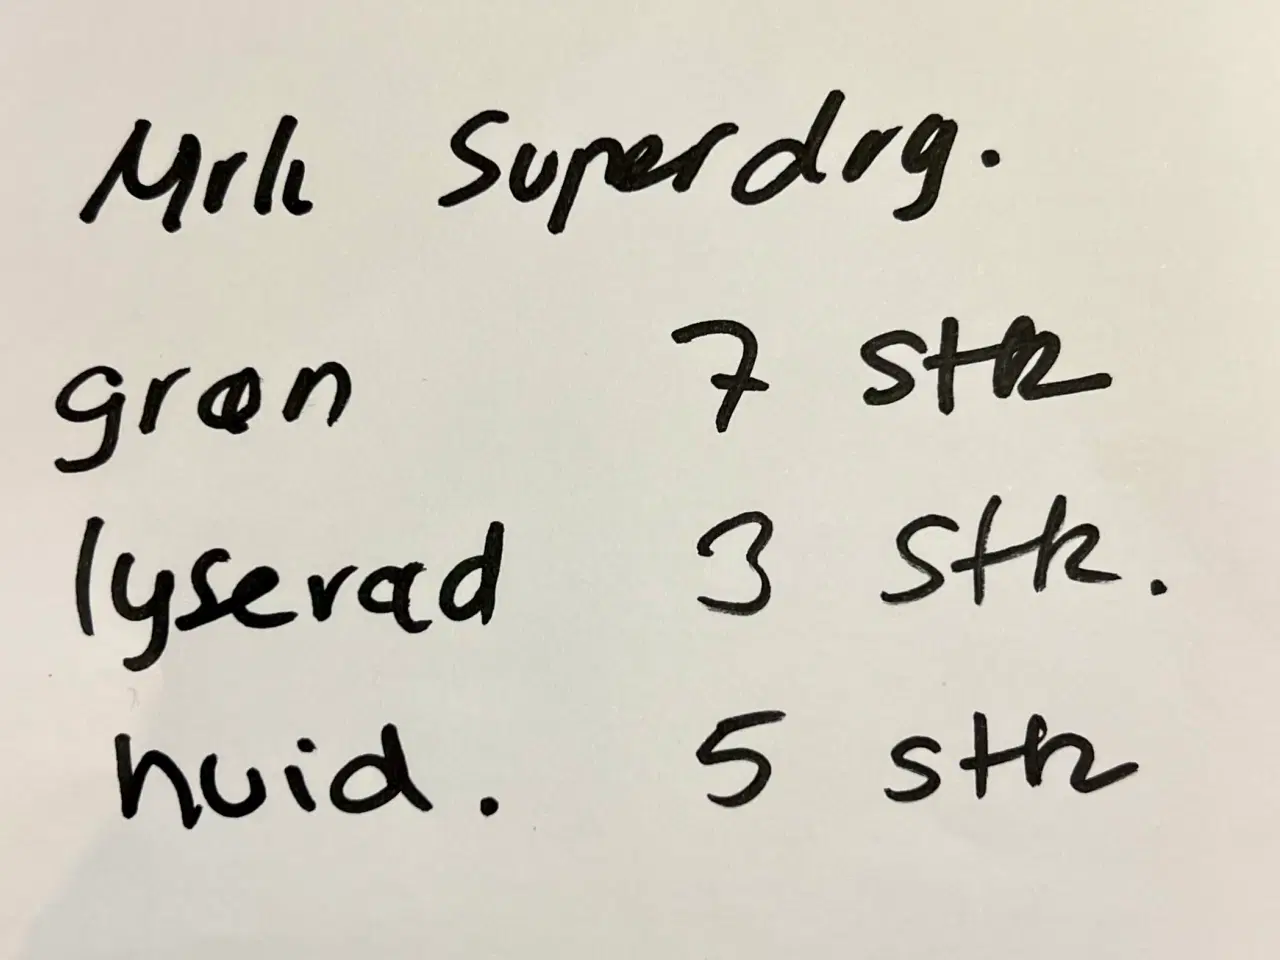 Mrk Superdrg.
grøn 7 stk
lyserød 3 stk.
hvid. 5 stk